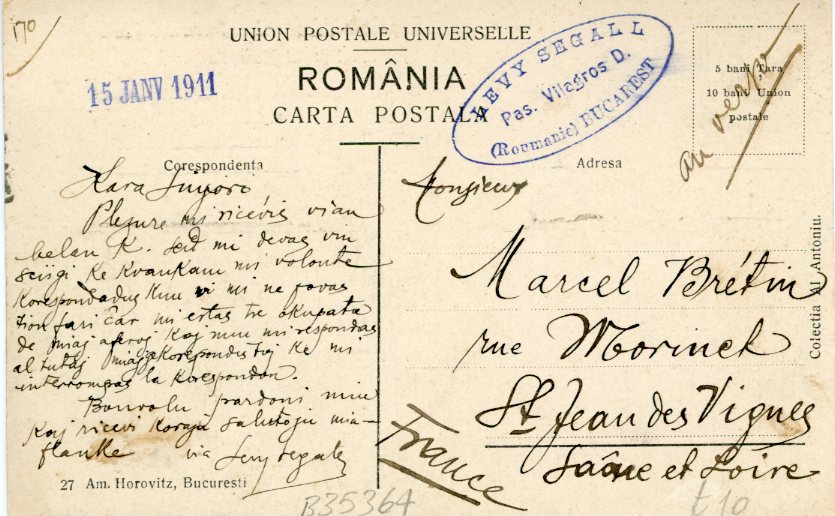 170
UNION POSTALE UNIVERSELLE
ROMÂNIA
CARTA POSTALA
15 JANV 1911
LEVY SEGALL
Pas. Vilagros D.
(Roumanie) BUCAREST
5 bani Ţara
10 bani Union
postale
au verso
Corespondenta
Kara Sinjoro
Plezure mi ricevis vian
belan K. sed mi devas vin
sciigi ke kvankam mi volonte
korespondadus kun vi mi ne povas
tion fari ĉar mi estas tre okupata
de miaj aferoj kaj nun mi respondas
al tutaj miajkorespondistoj ke mi
interrompas la korespondon.
Bonvolu pardoni min
kaj ricevi korajn salutojn mia-
flanke
via Levy Segall
Adresa
Monsieur
Marcel Brétin
rue Morinet
St Jean des Vignes
Saône et Loire
France
Colectia Al. Antoniu.
27 Am. Horovitz, Bucuresti
B35364
t10